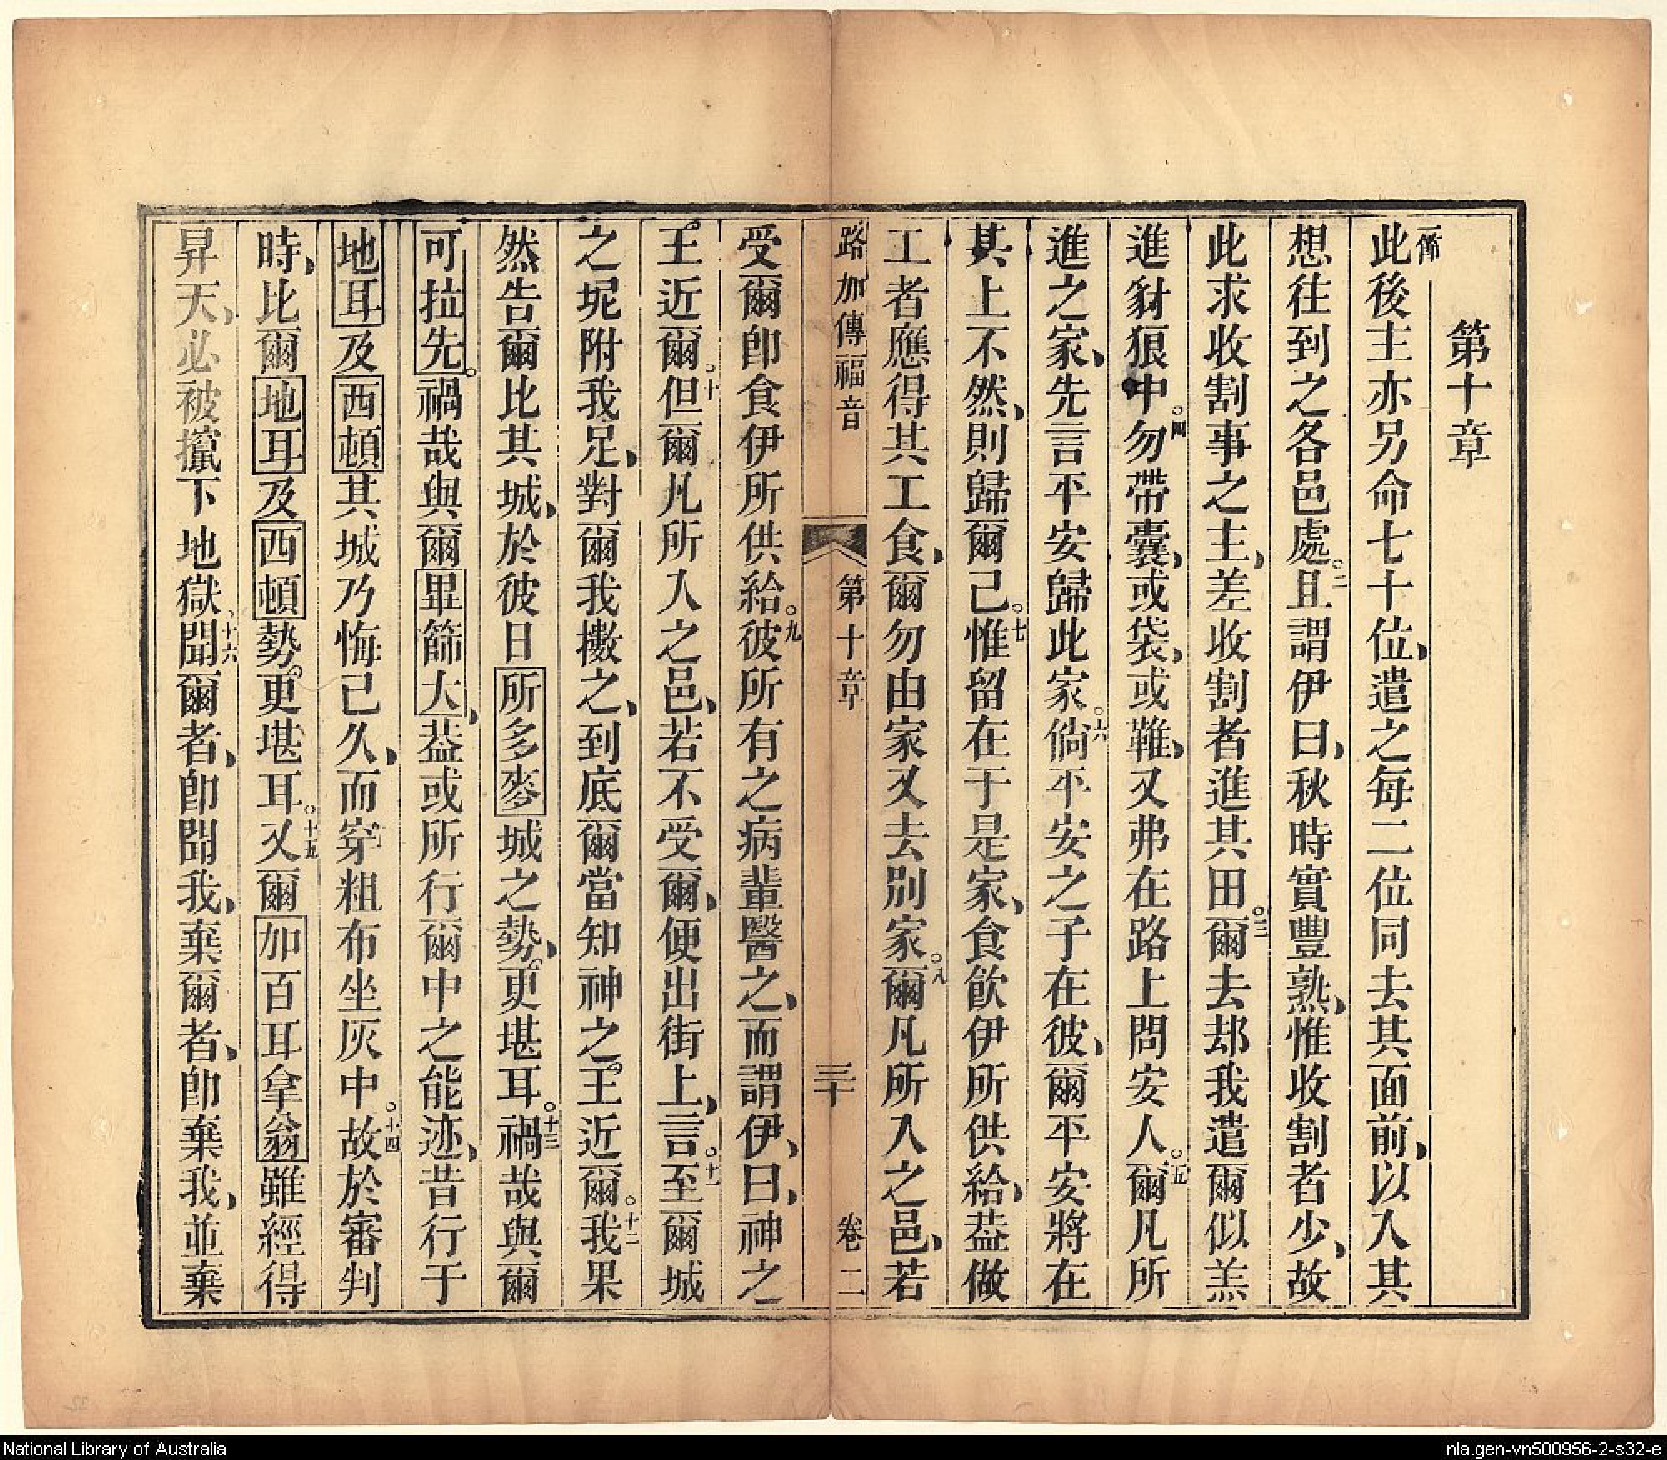 第十章
一節
此後主亦另命七十位、遣之每二位同去其面前、以入其
想往到之各邑處。二且謂伊曰、秋時實豐熟、惟收割者少、故
此求收割事之主、差收割者進其田。三爾去却我遣爾似羔
進豺狼中。四勿帶囊、或袋、或鞋、又弗在路上問安人。五爾凡所
進之家、先言平安歸此家。六倘平安之子在彼、爾平安將在
其上不然、則歸爾己。七惟留在于是家、食飲伊所供給、葢做
工者應得其工食、爾勿由家又去別家。八爾凡所入之邑、若
路加傳福音 第十章 三十 卷二
受爾卽食伊所供給。九彼所有之病輩醫之、而謂伊、曰、神之
王近爾。十但爾凡所入之邑、若不受爾、便出街上、言。十一至爾城
之坭附我足、對爾我擻之、到底爾當知神之王近爾。十二我果
然告爾比其城、於彼日所多麥城之勢、更堪耳。十三禍哉與爾
可拉先。禍哉與爾畢篩大、葢或所行爾中之能迹、昔行于
地耳及西頓其城乃悔己久、而穿粗布坐灰中。十四故於審判
時、比爾地耳及西頓勢、更堪耳。十五又爾加百耳拿翁雖經得
昇天、必被攛下地獄。十六聞爾者、卽聞我、棄爾者、卽棄我、並棄
National Library of Australia
nla.gen-vn500956-2-s32-e